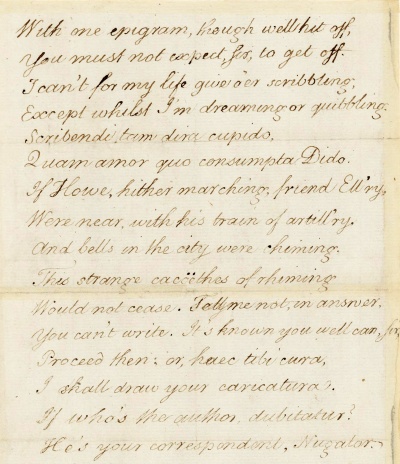 With one epigram, though well hit off,
You must not expect, sir, to get off.
I can't for my life give o'er scribbling,
Except whilst I'm dreaming or quibbling.
Scribendi tam dira cupido,
Quam amor quo consumpta Dido.
If Howe, hither marching, friend Ell'ry,
Were near, with his train of artill'ry.
And bells in the city were chiming.
This strange cacöethes of rhiming
Would not cease. Tell me not, in answer,
You can't write. It's known you well can, sir,
Proceed then; or, haec tibi cura,
I shall draw your caricatura.
If who's the author, dubitatur?
He's your correspondent, Nugator.